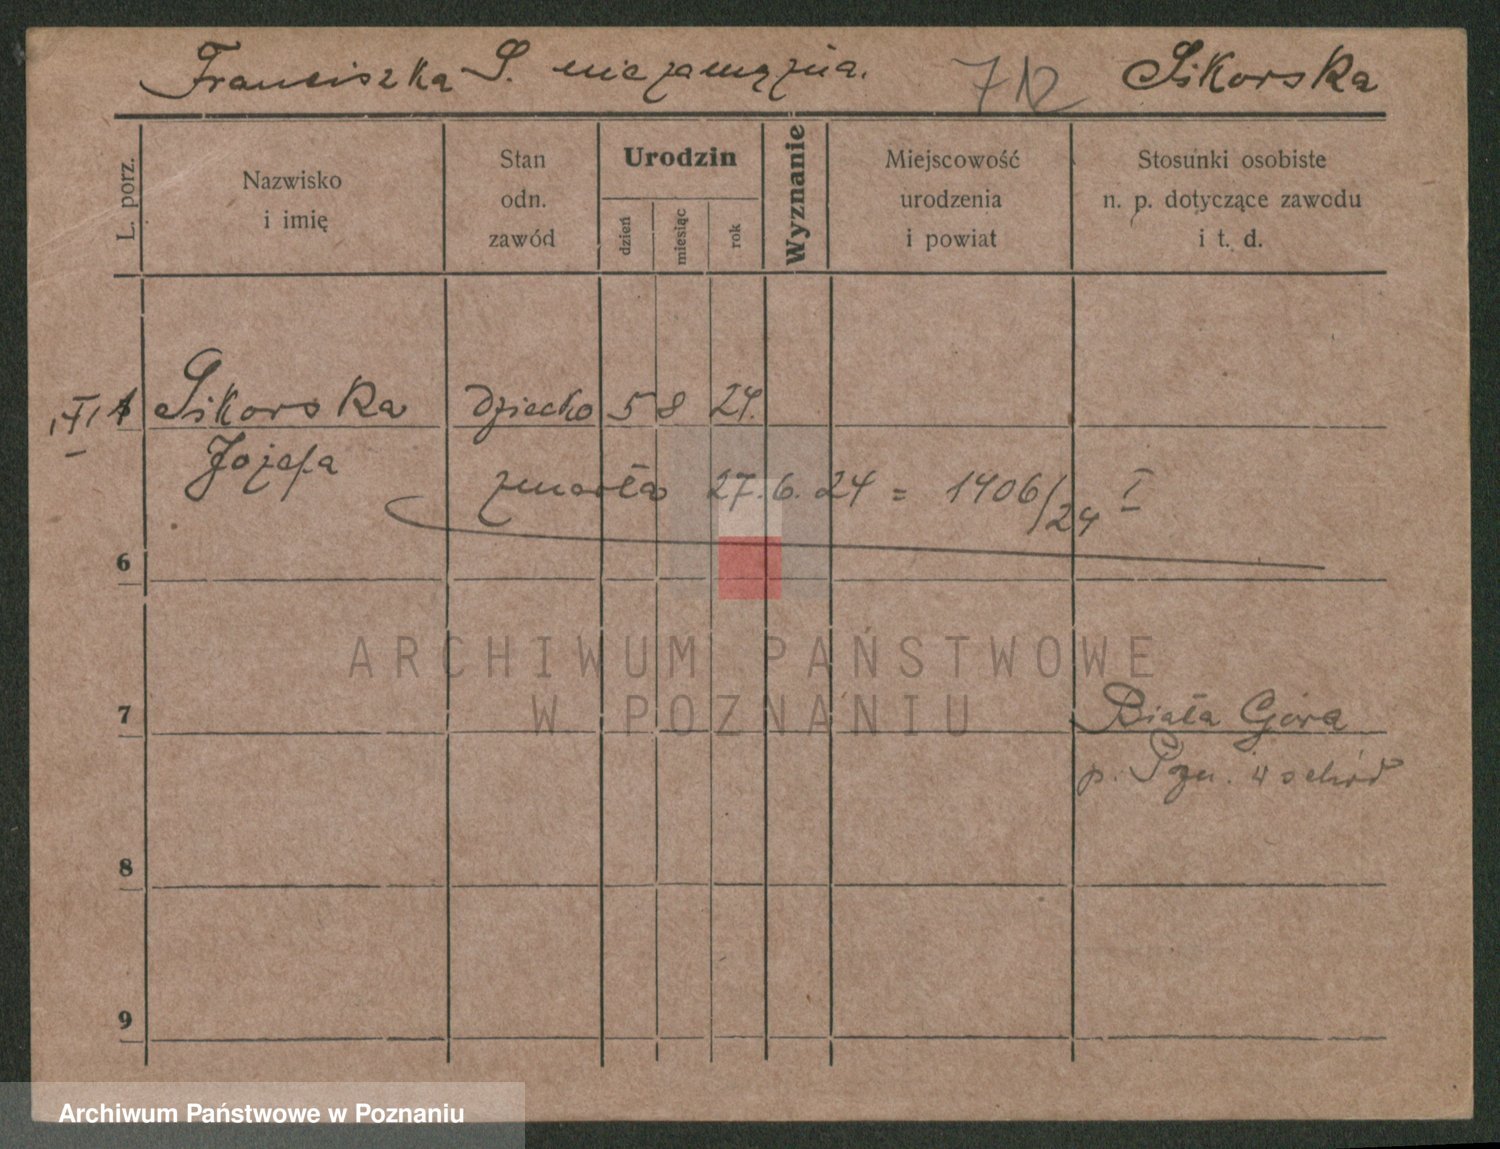 Franciszka S. niezamężna. 712 Sikorska
L. porz.
Nazwisko
i imię
Stan
odn.
zawód
Urodzin
dzień
miesiąc
rok
Wyznanie
Miejscowość
urodzenia
i powiat
Stosunki osobiste
n. p. dotyczące zawodu
i t. d.
Sikorska dziecko 5 8 24.
Józefa
zmarła 27.6.24 = 1406/24 I
6
ARCHIWUM PAŃSTWOWE
W POZNANIU
7
Biała Góra
p. Pzn. wschód
8
9
Archiwum Państwowe w Poznaniu